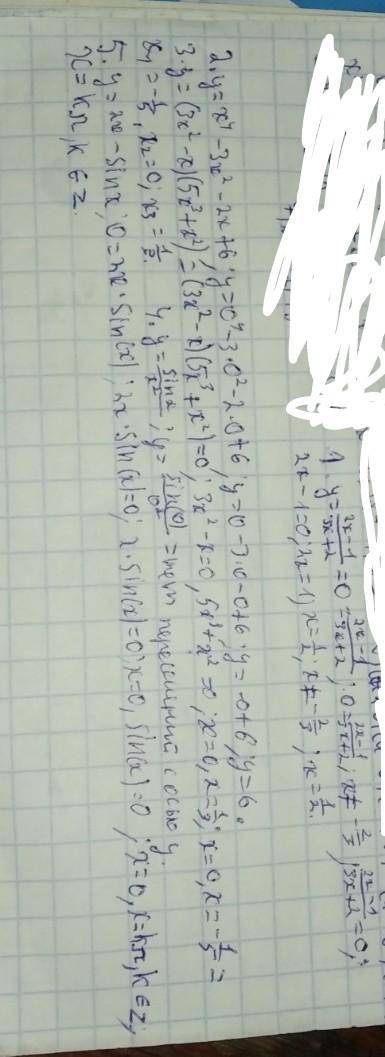 x
1. y = (2x-1)/(3x+2) = 0 = (2x-1)/(3x+2); 0 = (2x-1)/(3x+2); x ≠ -2/3; (2x-1)/(3x+2) = 0;
2x-1=0; 2x=1; x=1/2; x ≠ -2/3; x=1/2.
2. y=x⁴-3x²-2x+6; y=0⁴-3·0²-2·0+6; y=0-3·0-0+6; y=-0+6; y=6.
3. y=(3x²-x)(5x³+x²)=(3x²-x)(5x³+x²)=0; 3x²-x=0, 5x³+x²=0; x=0, x=1/3; x=0, x=-1/5 =
x₁=-1/5, x₂=0; x₃=1/3. 4. y=sinx/x²; y=sin(0)/0² = нет пересечений с осью y.
5. y=2x-sinx; 0=2x·sin(x); 2x·sin(x)=0; x·sin(x)=0; x=0, sin(x)=0; x=0, x=kπ, k∈Z;
x=kπ, k∈Z.